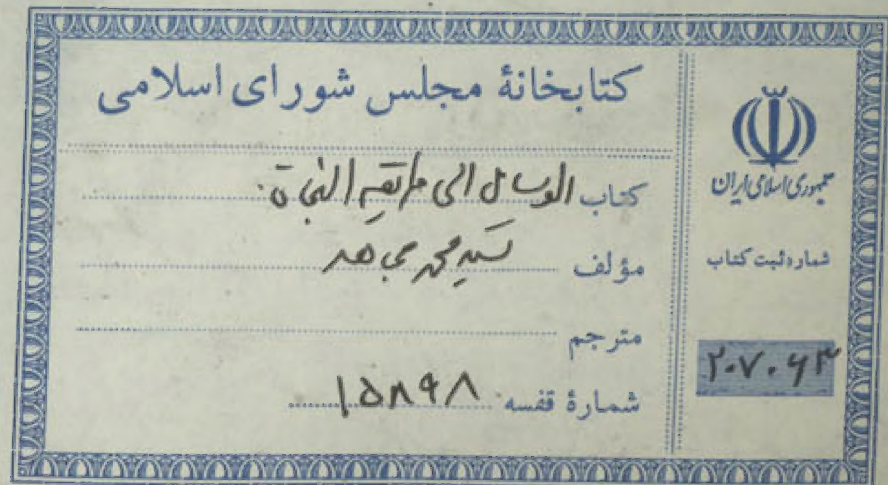 کتابخانهٔ مجلس شورای اسلامی
کتاب الوسائل الی طریقه النجاة
مؤلف سید محمد مجاهد
مترجم
شمارهٔ قفسه ۱۵۸۹۸
جمهوری اسلامی ایران
شماره ثبت کتاب
۲۰۷۰۶۳